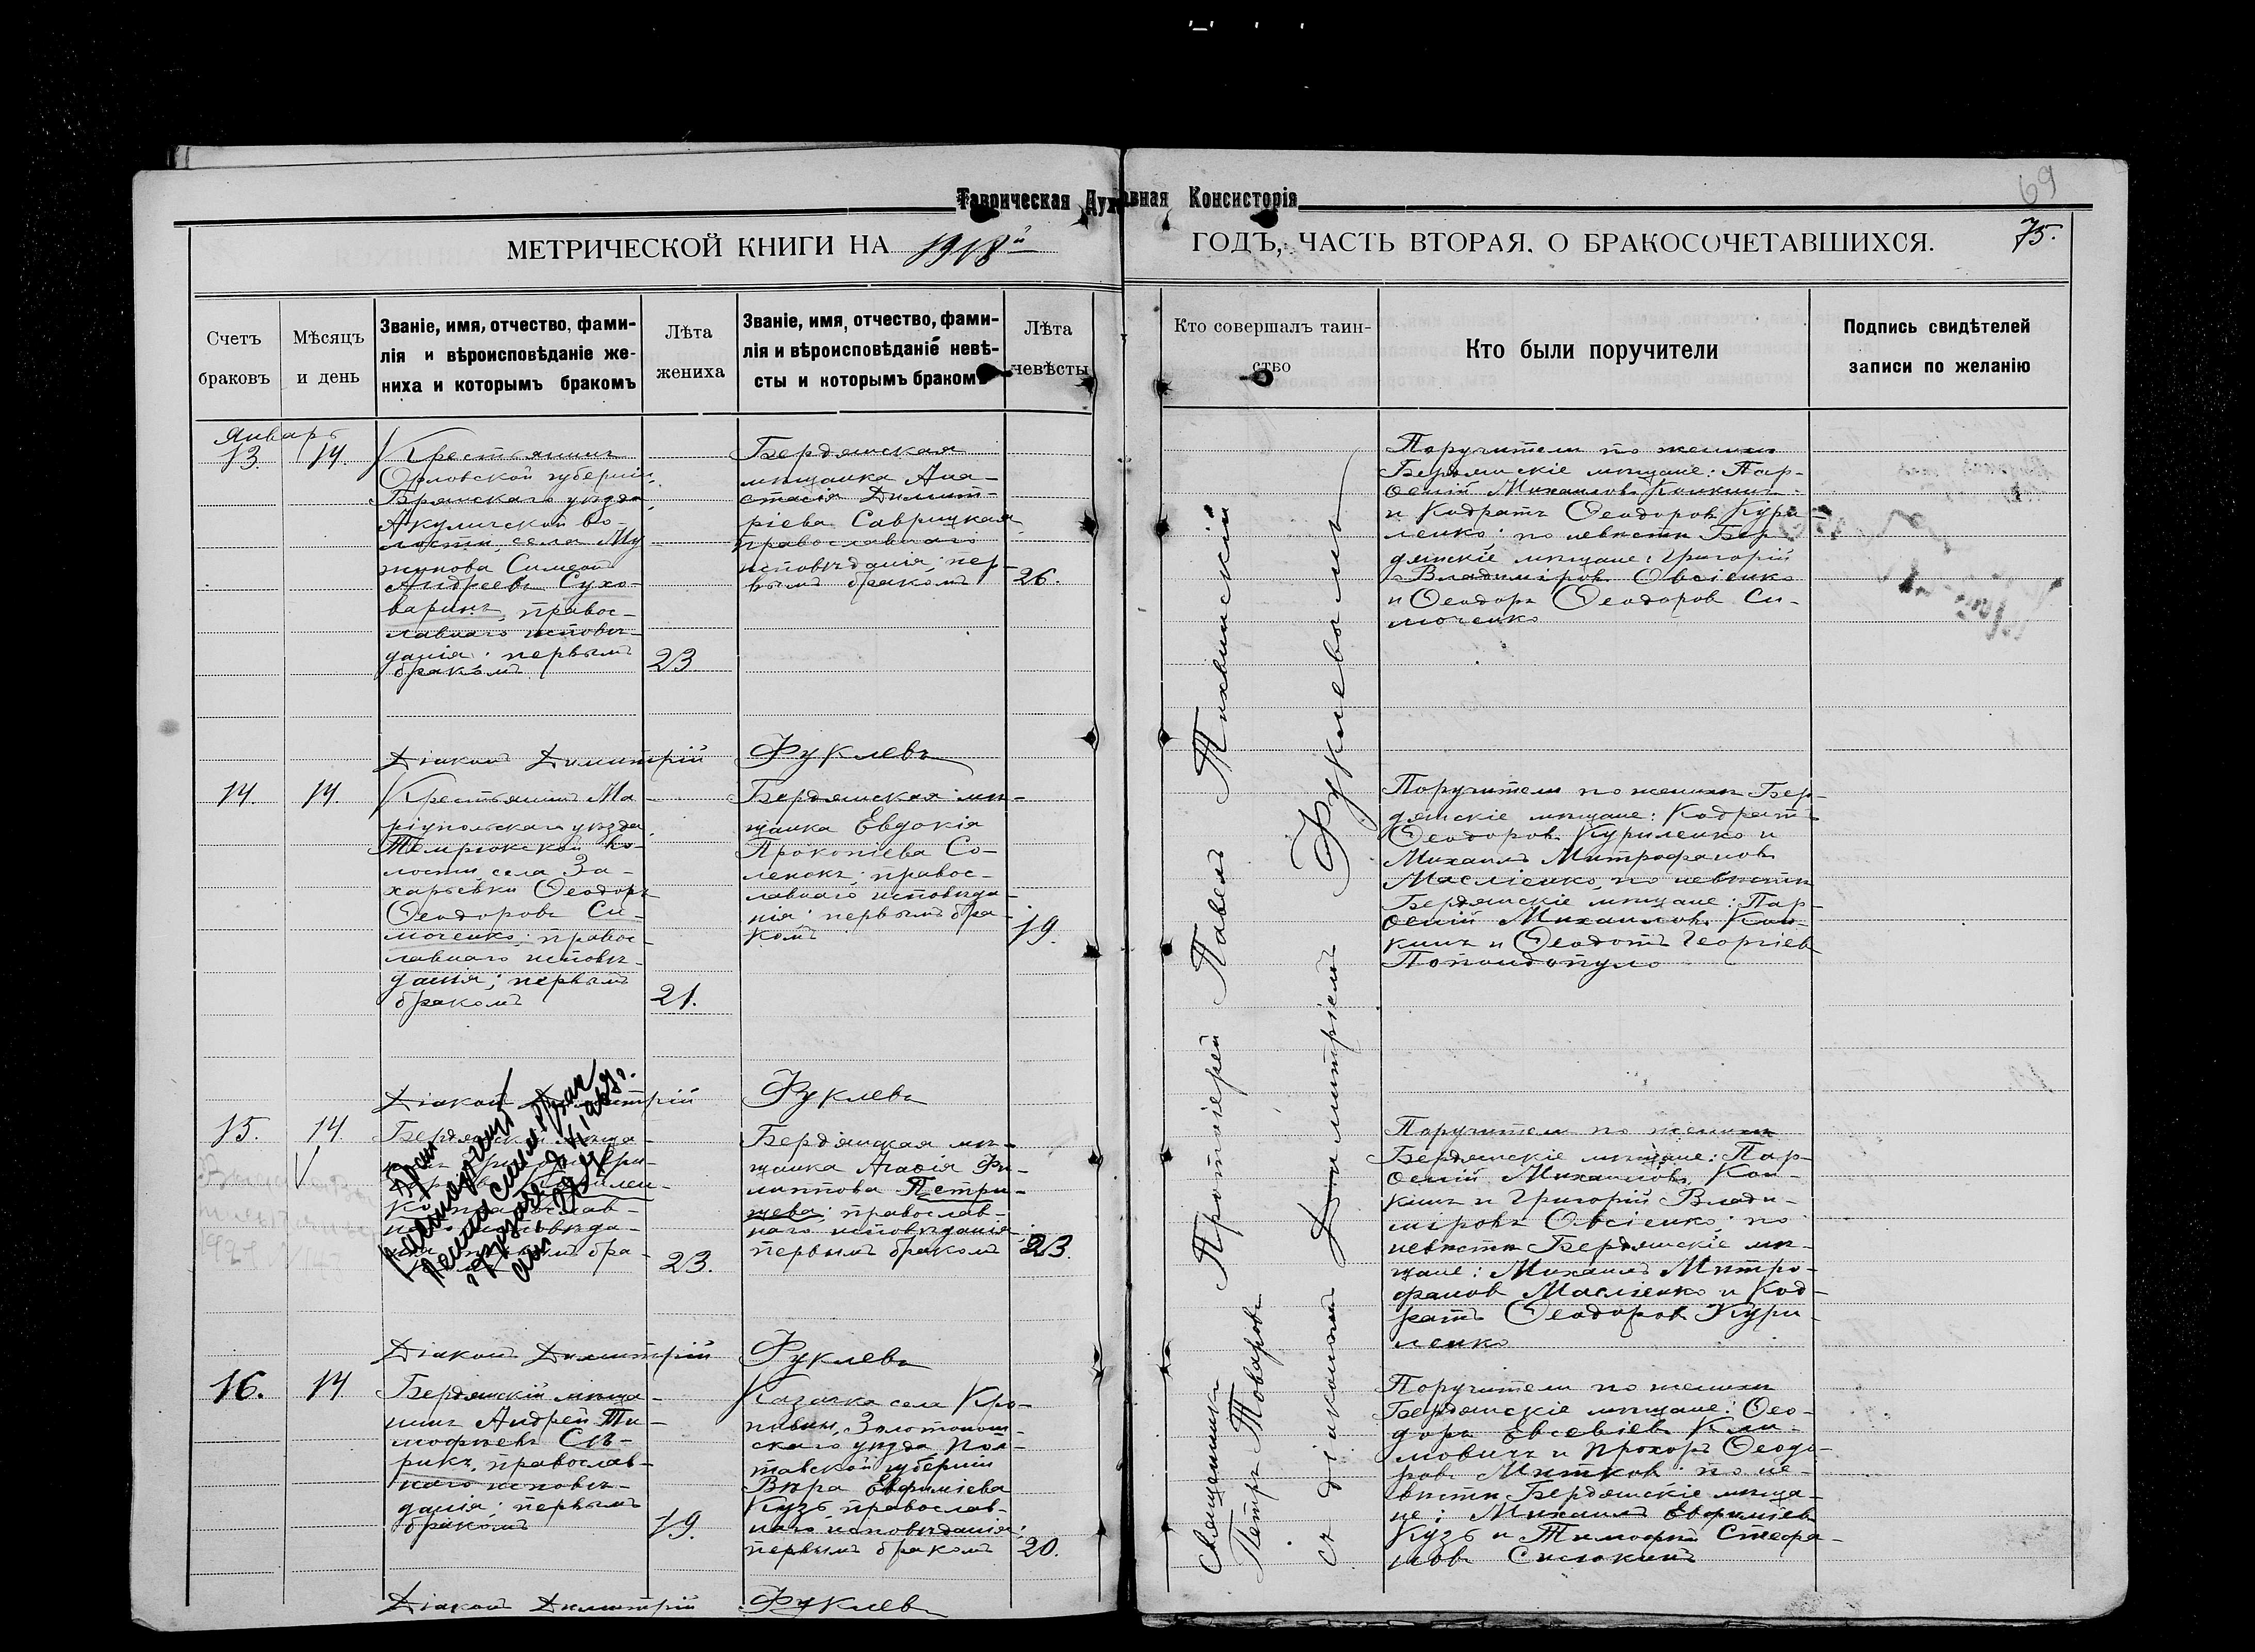 69
Таврическая Духовная Консисторія
МЕТРИЧЕСКОЙ КНИГИ НА 1918й ГОДЪ, ЧАСТЬ ВТОРАЯ, О БРАКОСОЧЕТАВШИХСЯ.
75.
Счетъ браковъ
Мѣсяцъ и день
Званіе, имя, отчество, фами-
лія и вѣроисповѣданіе же-
ниха и которымъ бракомъ
Лѣта
жениха
Званіе, имя, отчество, фами-
лія и вѣроисповѣданіе невѣ-
сты и которымъ бракомъ
Лѣта
невѣсты
Кто совершалъ таин-
ство
Кто были поручители
Подпись свидѣтелей
записи по желанію
Январь
13
14.
Крестьянинъ
Орловской губерніи,
Брянскаго уѣзда,
Акуличской во-
лости, села Му-
жинова Симеонъ
Андреевъ Сухо-
варинъ, правос-
лавнаго исповѣ-
данія; первымъ
бракомъ
23
Бердянская
мѣщанка Ана-
стасія Димит-
ріева Саврицкая
православнаго
исповѣданія; пер-
вымъ бракомъ
26.
Поручители по женихѣ
Бердянскіе мѣщане: Пар-
ѳеній Михаиловъ Конкинъ
и Кодратъ Ѳеодоровъ Кури-
ленко; по невѣстѣ Бер-
дянскіе мѣщане: Григорій
Владиміровъ Овсіенко
и Ѳеодоръ Ѳеодоровъ Си-
моченко
Діаконъ Димитрій Фуклевъ
14.
14.
Крестьянинъ Ма-
ріупольскаго уѣзда,
Темрюкской во-
лости, села За-
харьевки Ѳеодоръ
Ѳеодоровъ Си-
моченко; правос-
лавнаго исповѣ-
данія; первымъ
бракомъ
21.
Бердянская мѣ-
щанка Евдокія
Прокопіева Со-
ленокъ; правос-
лавнаго исповѣда-
нія; первымъ бра-
комъ
19.
Поручители по женихѣ Бер-
дянскіе мѣщане: Кодратъ
Ѳеодоровъ Куриленко и
Михаилъ Митрофановъ
Масліенко, по невѣстѣ
Бердянскіе мѣщане: Пар-
ѳеній Михаиловъ Кон-
кинъ и Ѳеодотъ Георгіевъ
Попандопуло
Діаконъ Димитрій Фуклевъ
15.
14.
Бердянскій мѣща-
23.
Бердянская мѣ-
щанка Агаѳія Фи-
липпова Петри-
щева; православ-
наго исповѣданія;
первымъ бракомъ
23.
Поручители по женихѣ
Бердянскіе мѣщане: Пар-
ѳеній Михаиловъ Кон-
кинъ и Григорій Влади-
міровъ Овсіенко; по
невѣстѣ Бердянскіе мѣ-
щане: Михаилъ Митро-
фановъ Масліенко и Код-
ратъ Ѳеодоровъ Кури-
ленко
Діаконъ Димитрій Фуклевъ
16.
14
Бердянскій мѣща-
нинъ Андрей Ти-
моѳеевъ Сѣ-
рикъ, православ-
наго исповѣ-
данія; первымъ
бракомъ
19.
Казачка села Кро-
пивны, Золотонош-
скаго уѣзда, Пол-
тавской губерніи
Вѣра Евфиміева
Кузь, православ-
наго исповѣданія;
первымъ бракомъ
20.
Поручители по женихѣ
Бердянскіе мѣщане: Ѳео-
доръ Евсевіевъ Кли-
мовичъ и Прохоръ Ѳеодо-
ровъ Митковъ; по не-
вѣстѣ Бердянскіе мѣща-
не: Михаилъ Евфиміевъ
Кузь и Тимофей Стефа-
новъ Сисюкинъ
Діаконъ Димитрій Фуклевъ
Протоіерей Павелъ Тихвинскій
Священникъ
Петръ Товаровъ
съ діакономъ Димитріемъ Фуклевымъ